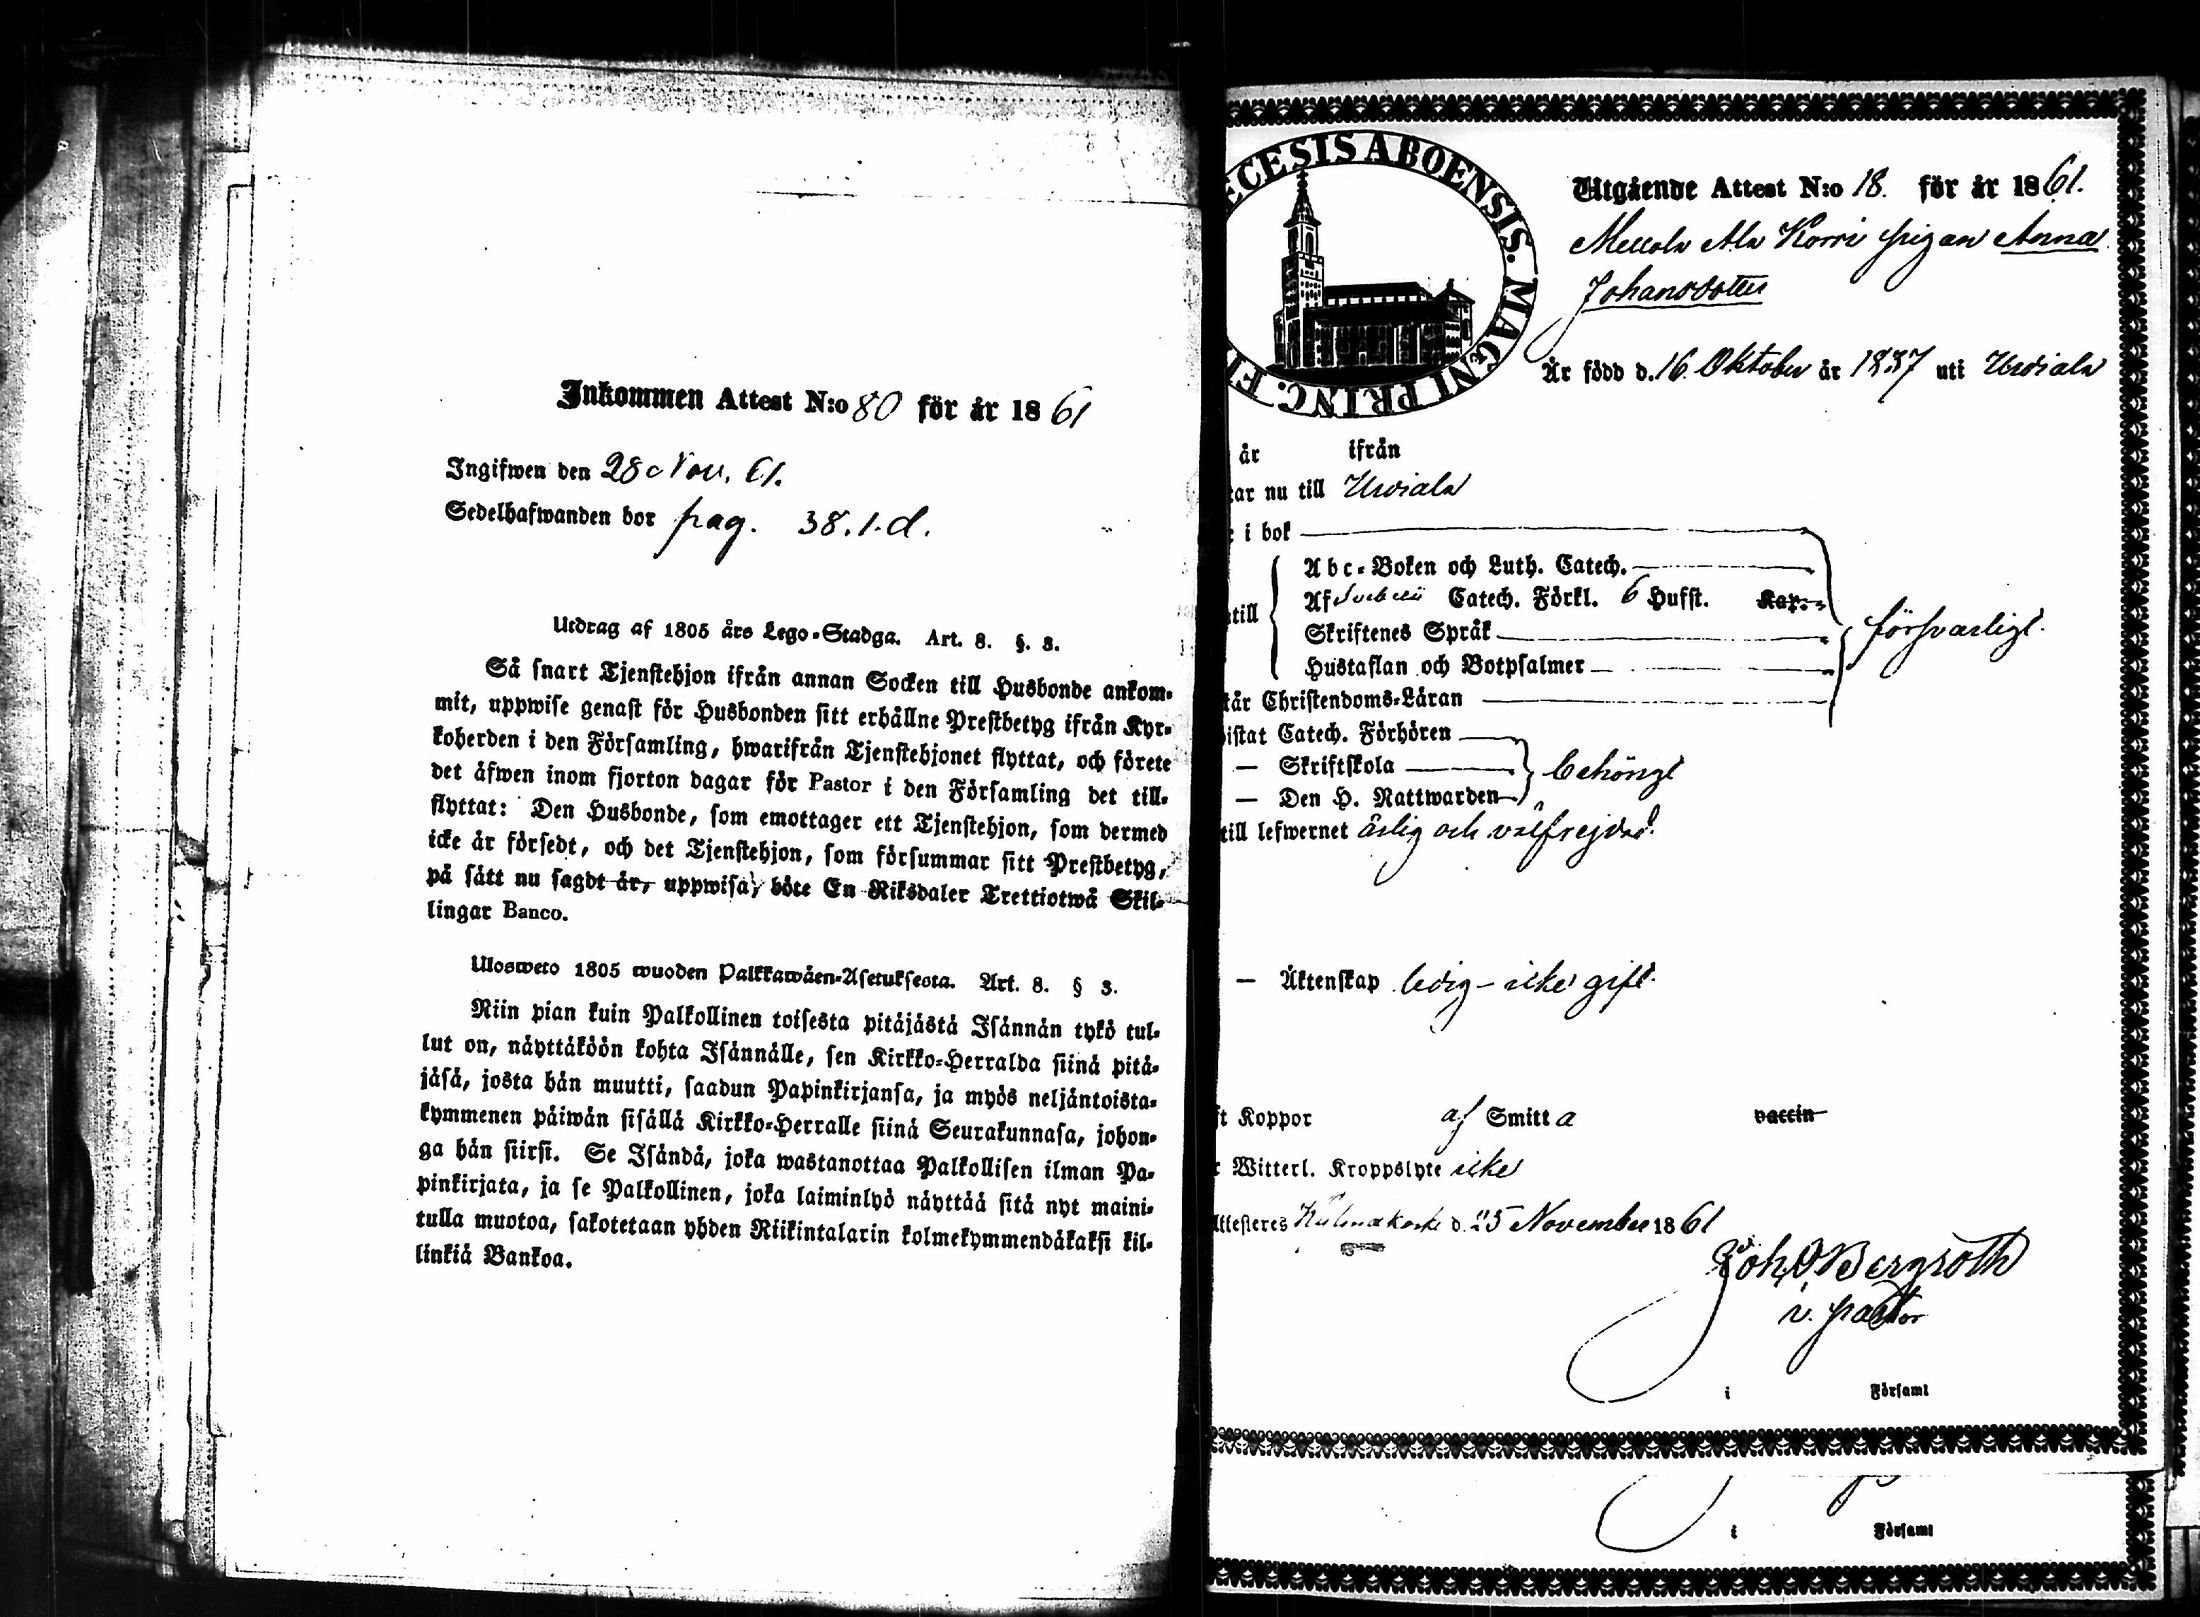 Inkommen Attest N:o 80 för år 1861
Ingifwen den 28 Nov. 61.
Sedelhafwanden bor pag. 38.1.d.
Utdrag af 1805 års Lego-Stadga. Art. 8. §. 3.
Så snart Tjenstehjon ifrån annan Socken till Husbonde ankom-
mit, uppwise genast för Husbonden sitt erhållne Prestbetyg ifrån Kyr-
koherden i den Församling, hwarifrån Tjenstehjonet flyttat, och förete
det äfwen inom fjorton dagar för Pastor i den Församling det till-
flyttat: Den Husbonde, som emottager ett Tjenstehjon, som dermed
icke är försedt, och det Tjenstehjon, som försummar sitt Prestbetyg,
på sätt nu sagdt är, uppwisa, böte En Riksdaler Trettiotwå Skil-
lingar Banco.
Ulosweto 1805 wuoden Palkkawäen-Asetuksesta. Art. 8. § 3.
Niin pian kuin Palkollinen toisesta pitäjästä Isännän tykö tul-
lut on, näyttäköön kohta Isännälle, sen Kirkko-Herralda siinä pitä-
jäsä, josta hän muutti, saadun Papinkirjansa, ja myös neljäntoista-
kymmenen päiwän sisällä Kirkko-Herralle siinä Seurakunnasa, johon-
ga hän siirsi. Se Isändä, joka wastanottaa Palkollisen ilman Pa-
pinkirjata, ja se Palkollinen, joka laiminlyö näyttää sitä nyt maini-
tulla muotoa, sakotetaan yhden Riikintalarin kolmekymmendäkaksi kil-
linkiä Bankoa.
ECESIS ABOENSIS. MAGNI PRINC. FI
Utgående Attest N:o 18. för år 1861.
Mellola Ala Korri pigan Anna
Johansdotter
Är född d. 16 Oktober år 1837 uti Urdiala
år ifrån
tar nu till Urdiala
i bok
Abc-Boken och Luth. Catech.
till Af Svebelii Catech. Förkl. 6 Hufst. Kap.
Skriftenes Språk
försvarligt.
Hustaflan och Botpsalmer
tår Christendoms-Läran
istat Catech. Förhören
— Skriftskola
behörigt
— Den H. Nattwarden
till lefwernet ärlig och välfrejdad.
— Äktenskap ledig - icke gift.
ft Koppor af Smitta vaccin
r Witterl. Kroppslyte icke
Attesteres Kulmakoski d. 25 November 1861
Joh. O Bergroth
v. pastor
i Församl
i Församl